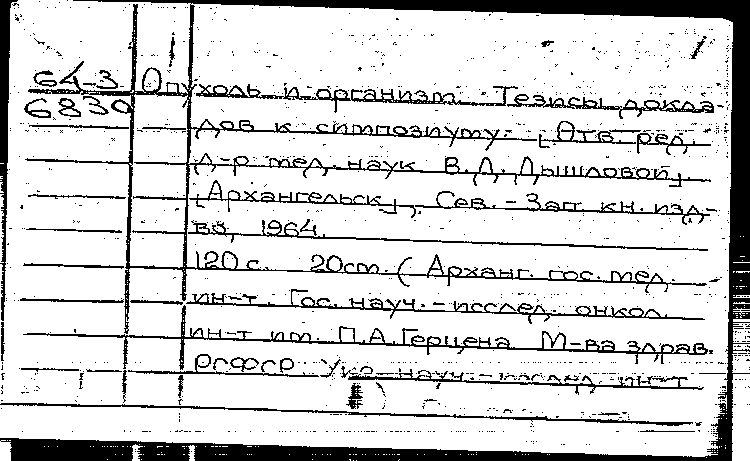 64-3
6830
Опухоль и организм. Тезисы докла-
дов к симпозиуму. [Отв. ред.
д-р мед. наук В.Д. Дышловой].
[Архангельск], Сев.-Зап. кн. изд-
во, 1964.
120 с. 20см. (Арханг. гос. мед.
ин-т. Гос. науч.-исслед. онкол.
ин-т им. П.А. Герцена М-ва здрав.
РСФСР. Укр. науч.-исслед. ин-т